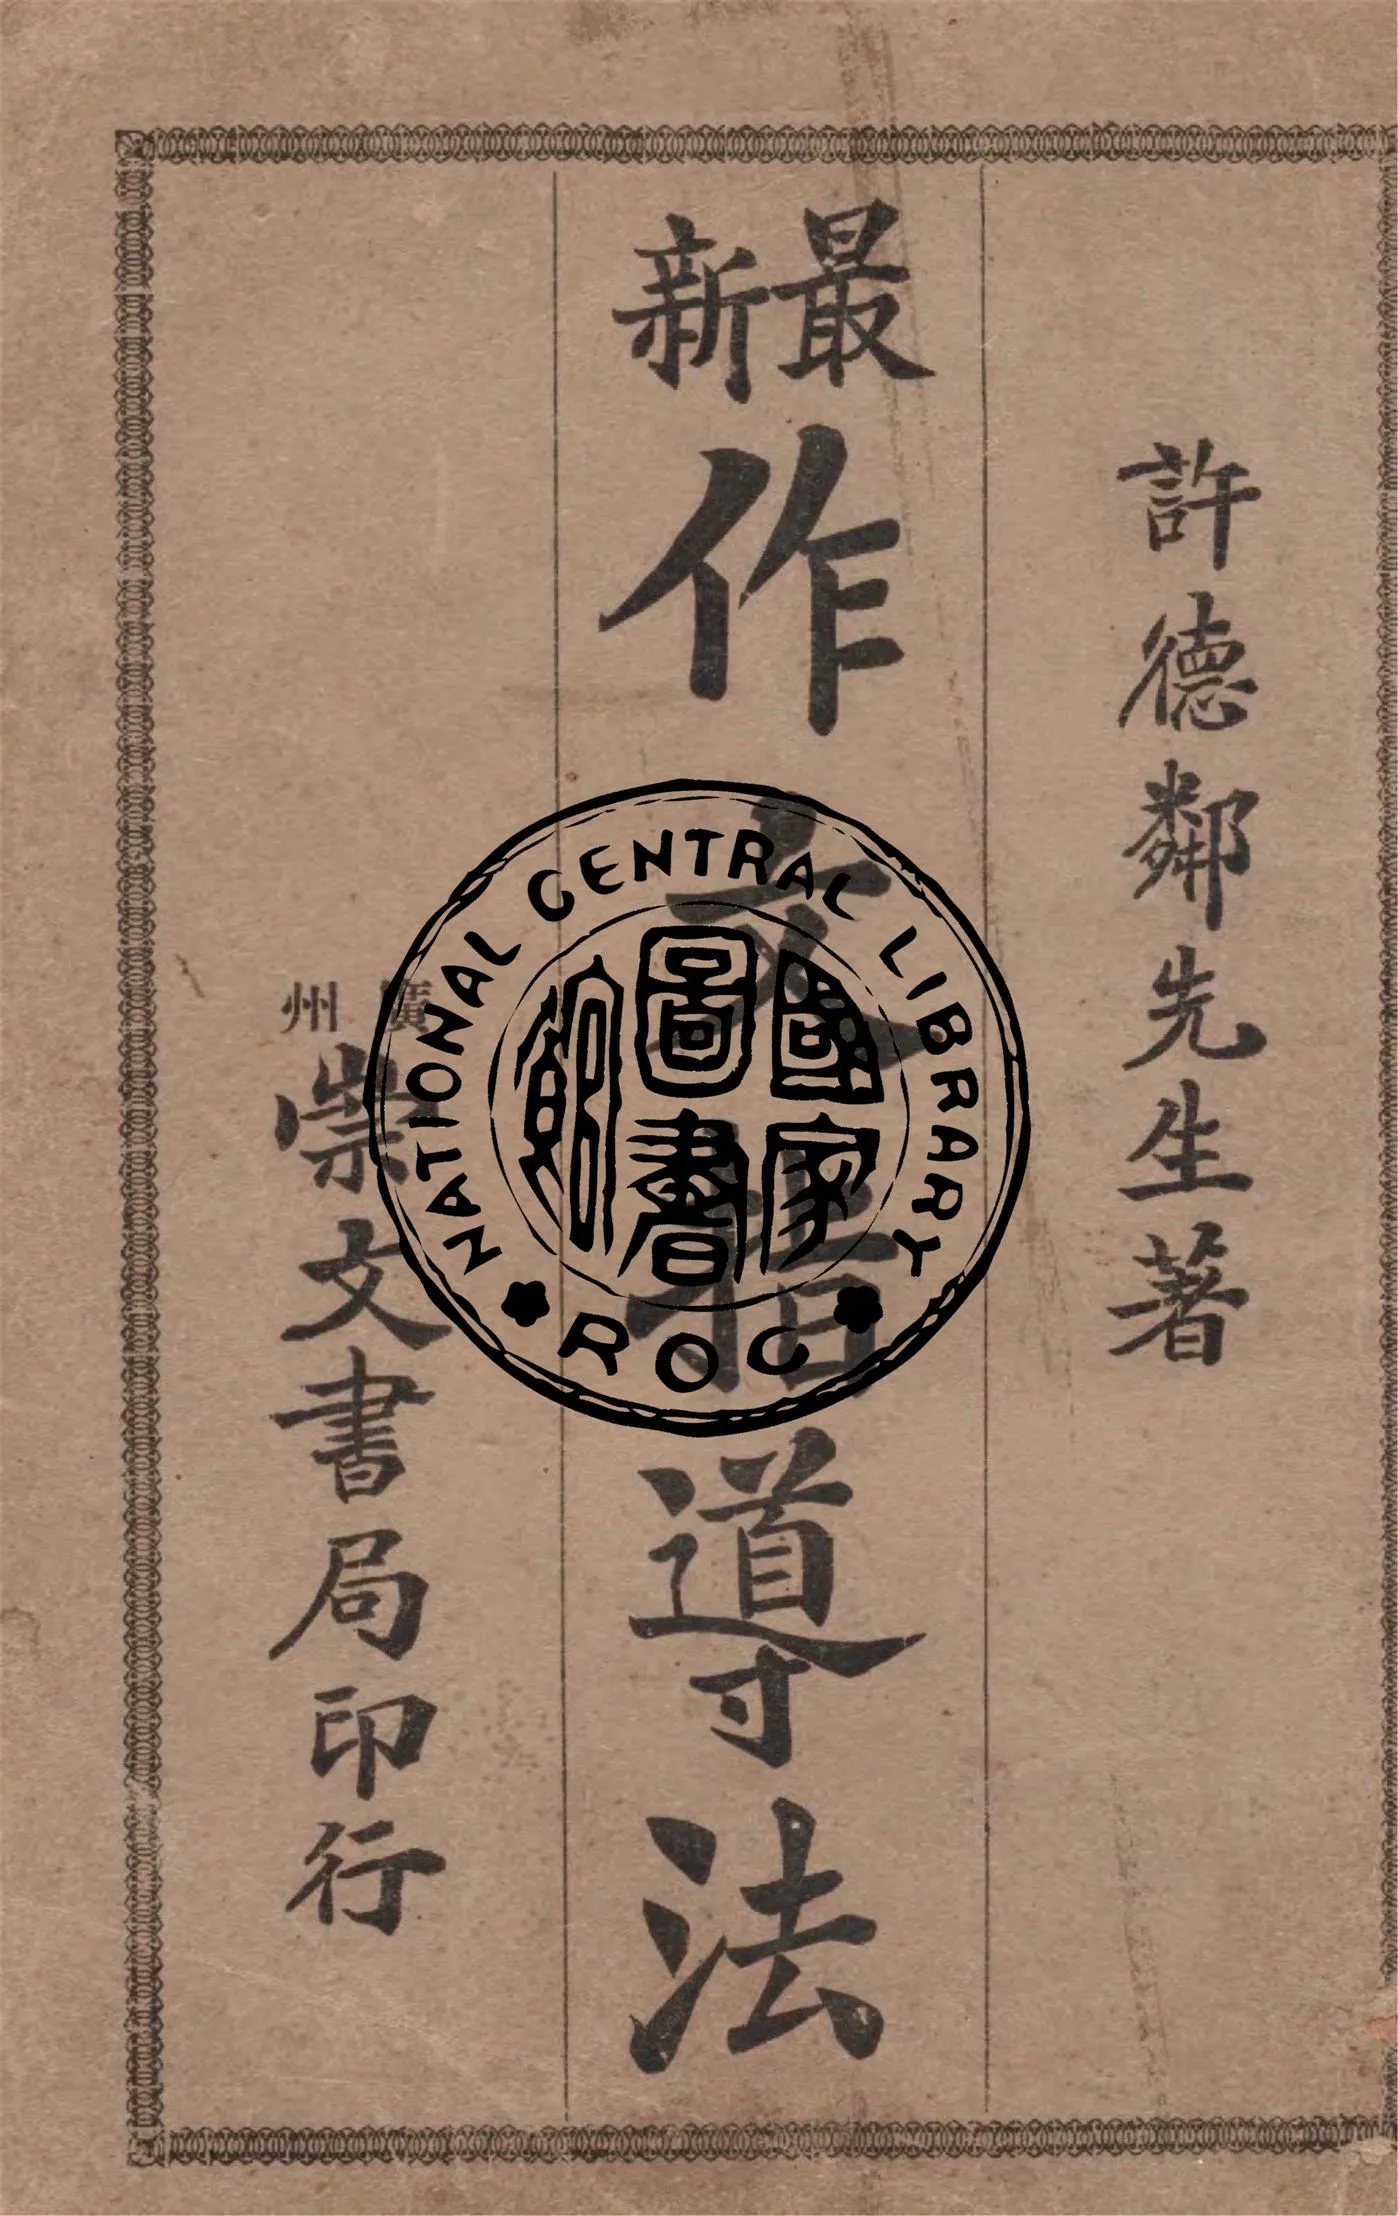 許德鄰先生著
最新
作文指導法
廣州
崇文書局印行
NATIONAL CENTRAL LIBRARY
ROC
國家圖書館